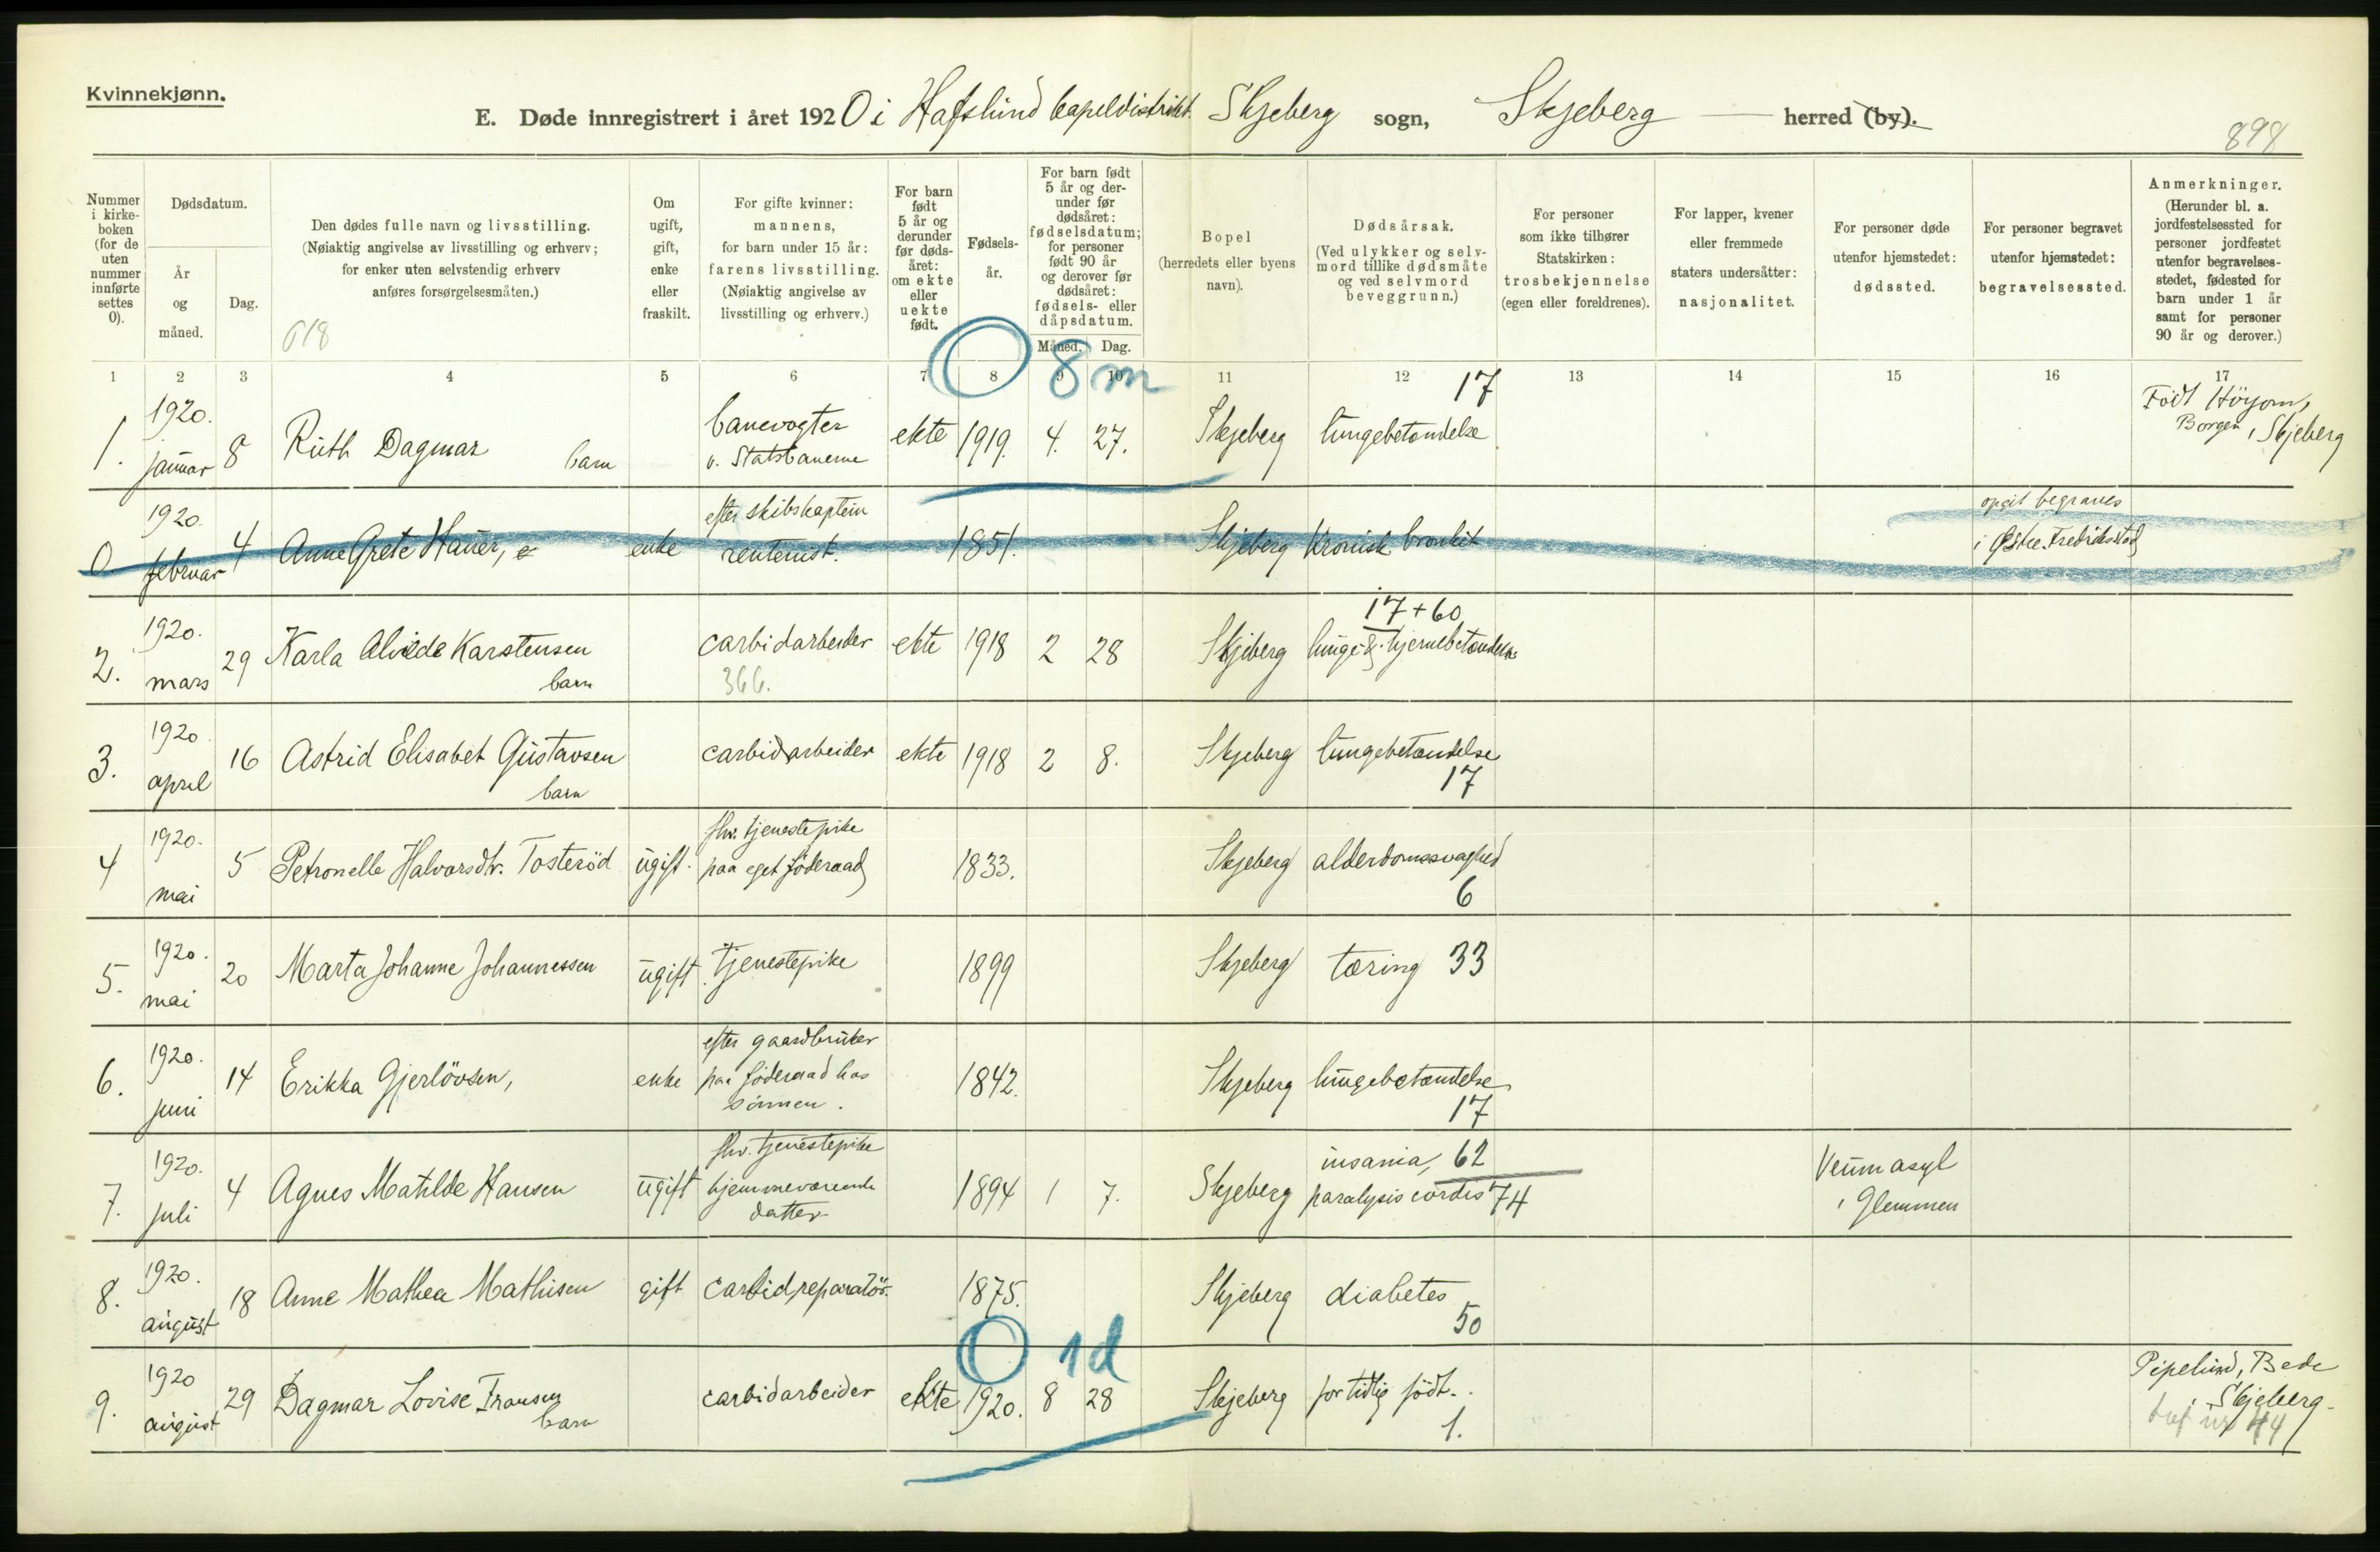 Kvinnekjønn.
E. Døde innregistrert i året 1920 i Hafslund capeldistrikt. Skjeberg sogn, Skjeberg herred (by).
898
Nummer i kirkeboken (for de uten nummer innførte settes 0).
Dødsdatum.
År og måned.
Dag.
Den dødes fulle navn og livsstilling.
(Nøiaktig angivelse av livsstilling og erhverv; for enker uten selvstendig erhverv anføres forsørgelsesmåten.)
618
Om ugift, gift, enke eller fraskilt.
For gifte kvinner: mannens, for barn under 15 år: farens livsstilling. (Nøiaktig angivelse av livsstilling og erhverv.)
For barn født 5 år og derunder før dødsåret: om ekte eller uekte født.
Fødselsår.
For barn født 5 år og derunder før dødsåret: fødselsdatum; for personer født 90 år og derover før dødsåret: fødsels- eller dåpsdatum.
Måned. Dag.
Bopel (herredets eller byens navn).
Dødsårsak. (Ved ulykker og selvmord tillike dødsmåte og ved selvmord beveggrunn.)
For personer som ikke tilhører Statskirken: trosbekjennelse (egen eller foreldrenes).
For lapper, kvener eller fremmede staters undersåtter: nasjonalitet.
For personer døde utenfor hjemstedet: dødssted.
For personer begravet utenfor hjemstedet: begravelsessted.
Anmerkninger. (Herunder bl. a. jordfestelsessted for personer jordfestet utenfor begravelsesstedet, fødested for barn under 1 år samt for personer 90 år og derover.)
1 2 3 4 5 6 7 8 9 10 11 12 13 14 15 16 17
0 8 m
1. 1920. januar 8 Ruth Dagmar barn banevogter v. Statsbanerne ekte 1919. 4. 27. Skjeberg lungebetændelse 17 Født Höyom, Borgen, Skjeberg
0 1920. februar 4 Anne Grete Hauer, enke efter skibskaptein rentenist. 1851. Skjeberg Kronisk bronkit opgit begraves i Østre Fredriksstad
2. 1920. mars 29 Karla Alvilde Karstensen barn carbidarbeider 366. ekte 1918 2 28 Skjeberg 17+60 lunge & hjernebetændelse
3. 1920 april 16 Astrid Elisabet Gustavsen barn carbidarbeider ekte 1918 2 8. Skjeberg lungebetændelse 17
4 1920. mai 5 Petronelle Halvorsdtr. Tosteröd ugift. fhv. tjenestepike paa eget föderaad 1833. Skjeberg alderdomssvaghed 6
5. 1920. mai 20 Marta Johanne Johannessen ugift. tjenestepike 1899 Skjeberg tæring 33
6. 1920. juni 14 Erikka Gjerlövsen, enke efter gaardbruker paa föderaad hos sönnen. 1842. Skjeberg lungebetændelse 17
7. 1920. juli 4 Agnes Matilde Hansen ugift fhv. tjenestepike hjemmeværende datter 1894 1 7. Skjeberg insania, 62 paralysis cordis 74 Veum asyl i Glemmen
8. 1920. august 18 Anne Mathea Mathisen gift carbidreparatör. 1875. Skjeberg diabetes 50
0 1d
9. 1920 august 29 Dagmar Lovise Fransen barn carbidarbeider ekte 1920. 8 28 Skjeberg for tidlig födt. 1. Pipelund, Bede i Skjeberg. nr 44